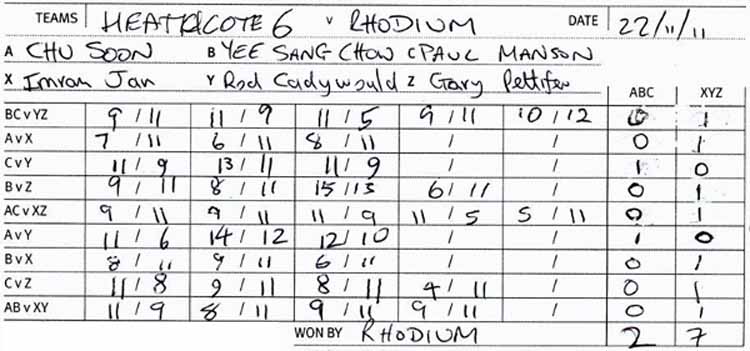 TEAMS HEATHCOTE 6 v RHODIUM DATE 22/11/11
A CHU SOON B YEE SANG CHOW C PAUL MANSON
X Imran Jan Y Rod Cadywould Z Gary Pettifer ABC XYZ
BC v YZ 9 / 11 11 / 9 11 / 5 9 / 11 10 / 12 0 1
A v X 7 / 11 6 / 11 8 / 11 / / 0 1
C v Y 11 / 9 13 / 11 11 / 9 / / 1 0
B v Z 9 / 11 8 / 11 15 / 13 6 / 11 / 0 1
AC v XZ 9 / 11 9 / 11 11 / 9 11 / 5 5 / 11 0 1
A v Y 11 / 6 14 / 12 12 / 10 / / 1 0
B v X 8 / 11 9 / 11 6 / 11 / / 0 1
C v Z 11 / 8 9 / 11 8 / 11 4 / 11 / 0 1
AB v XY 11 / 9 8 / 11 9 / 11 9 / 11 / 0 1
WON BY RHODIUM 2 7